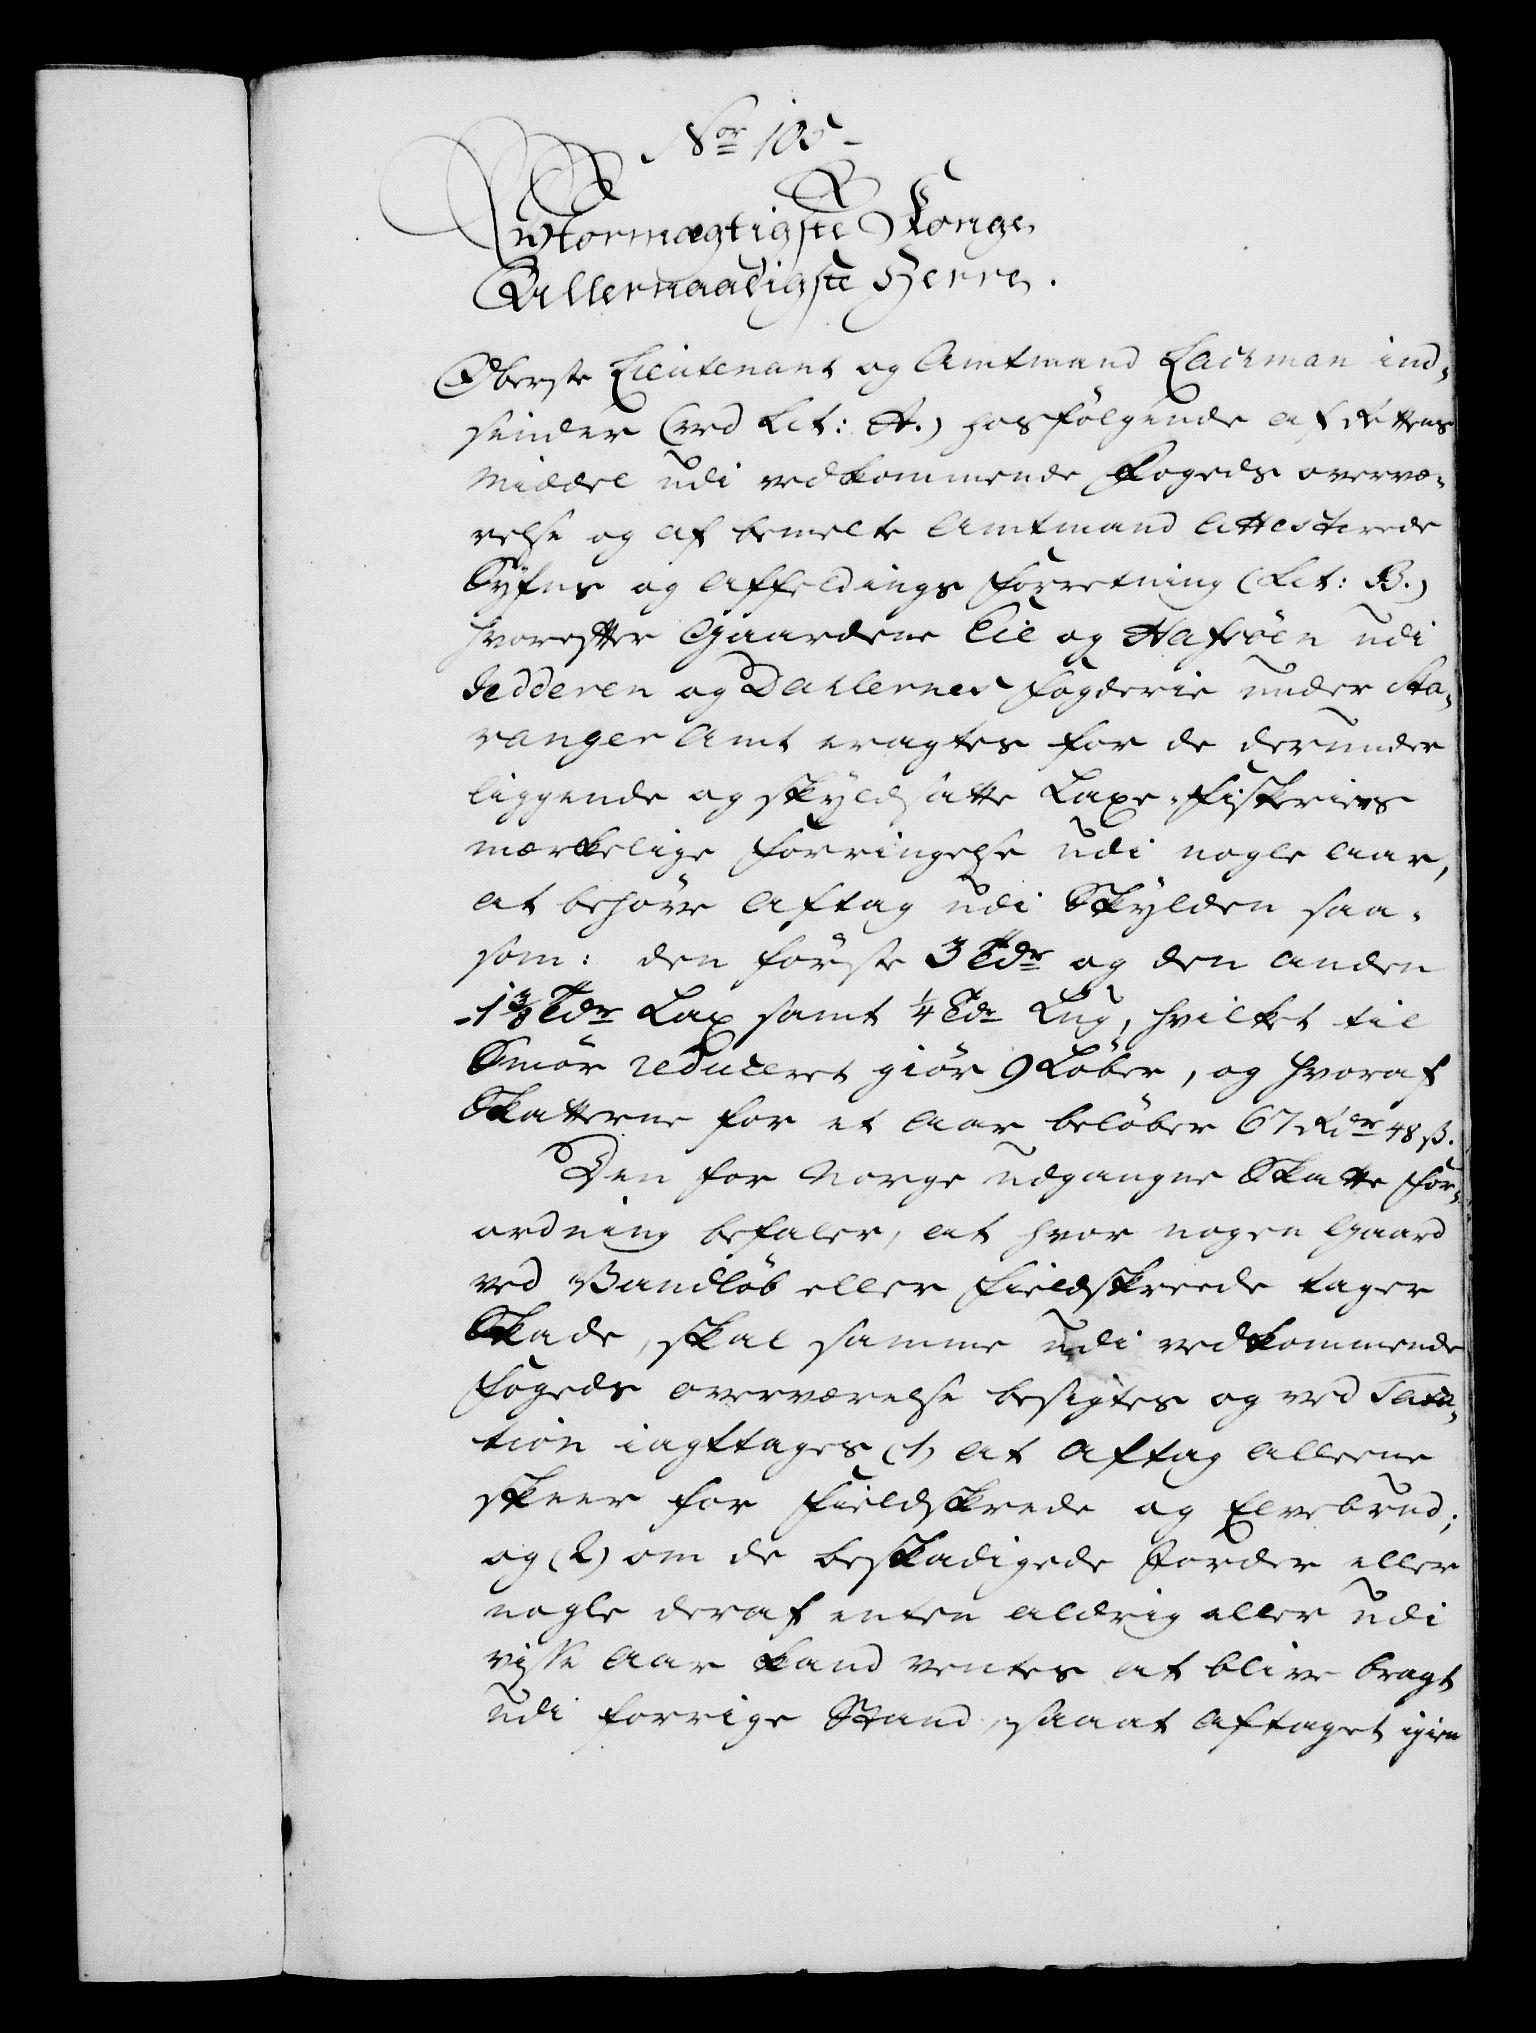 No_r 105-
Stormægtigste Konge,
Allernaadigste Herre.
Oberste Lieutenant og Amtmand Lachman ind,
sender (ved Lit: A.) hosfölgende af Rettens
Middel udi vedkommende Fogeds overvæ,
relse og af bemelte Amtmand attesterede
Syhns og Affeldings Forretning (Lit: B.)
hvorefter Gaardene Eie og Hafsöen udi
Jedderen og Dahlernes Fogderie under Sta,
vanger Amt eragtes for de derunder
liggende og skyldsatte Laxe-Fiskeries
mærkelige Forringelse udi nogle Aar,
at behöve Aftag udi Skylden saa,
som: den förste 3 Tdr og den anden
1 3/8 Tdr Lax samt 1/4 Tdr Lug, hvilket til
Smör reduceret giör 9 Löber, og hvoraf
Skatterne for et Aar belöber 67 Rdr 48 ß.
Den for Norge udgangne Skatte For,
ordning befaler, at hvor nogen Gaard
ved Vandlöb eller Fieldskreede tager
Skade, skal samme udi vedkommende
Fogeds overværelse besigtes og ved Taxa,
tion iagttages (1) at Aftag alleene
skeer for Fieldskrede og Elvebrud;
og (2) om de beskadigede Jorder eller
nogle deraf enten aldrig eller udi
visse Aar kand ventes at blive bragt
udi forrige Stand, saa at Aftaget igien